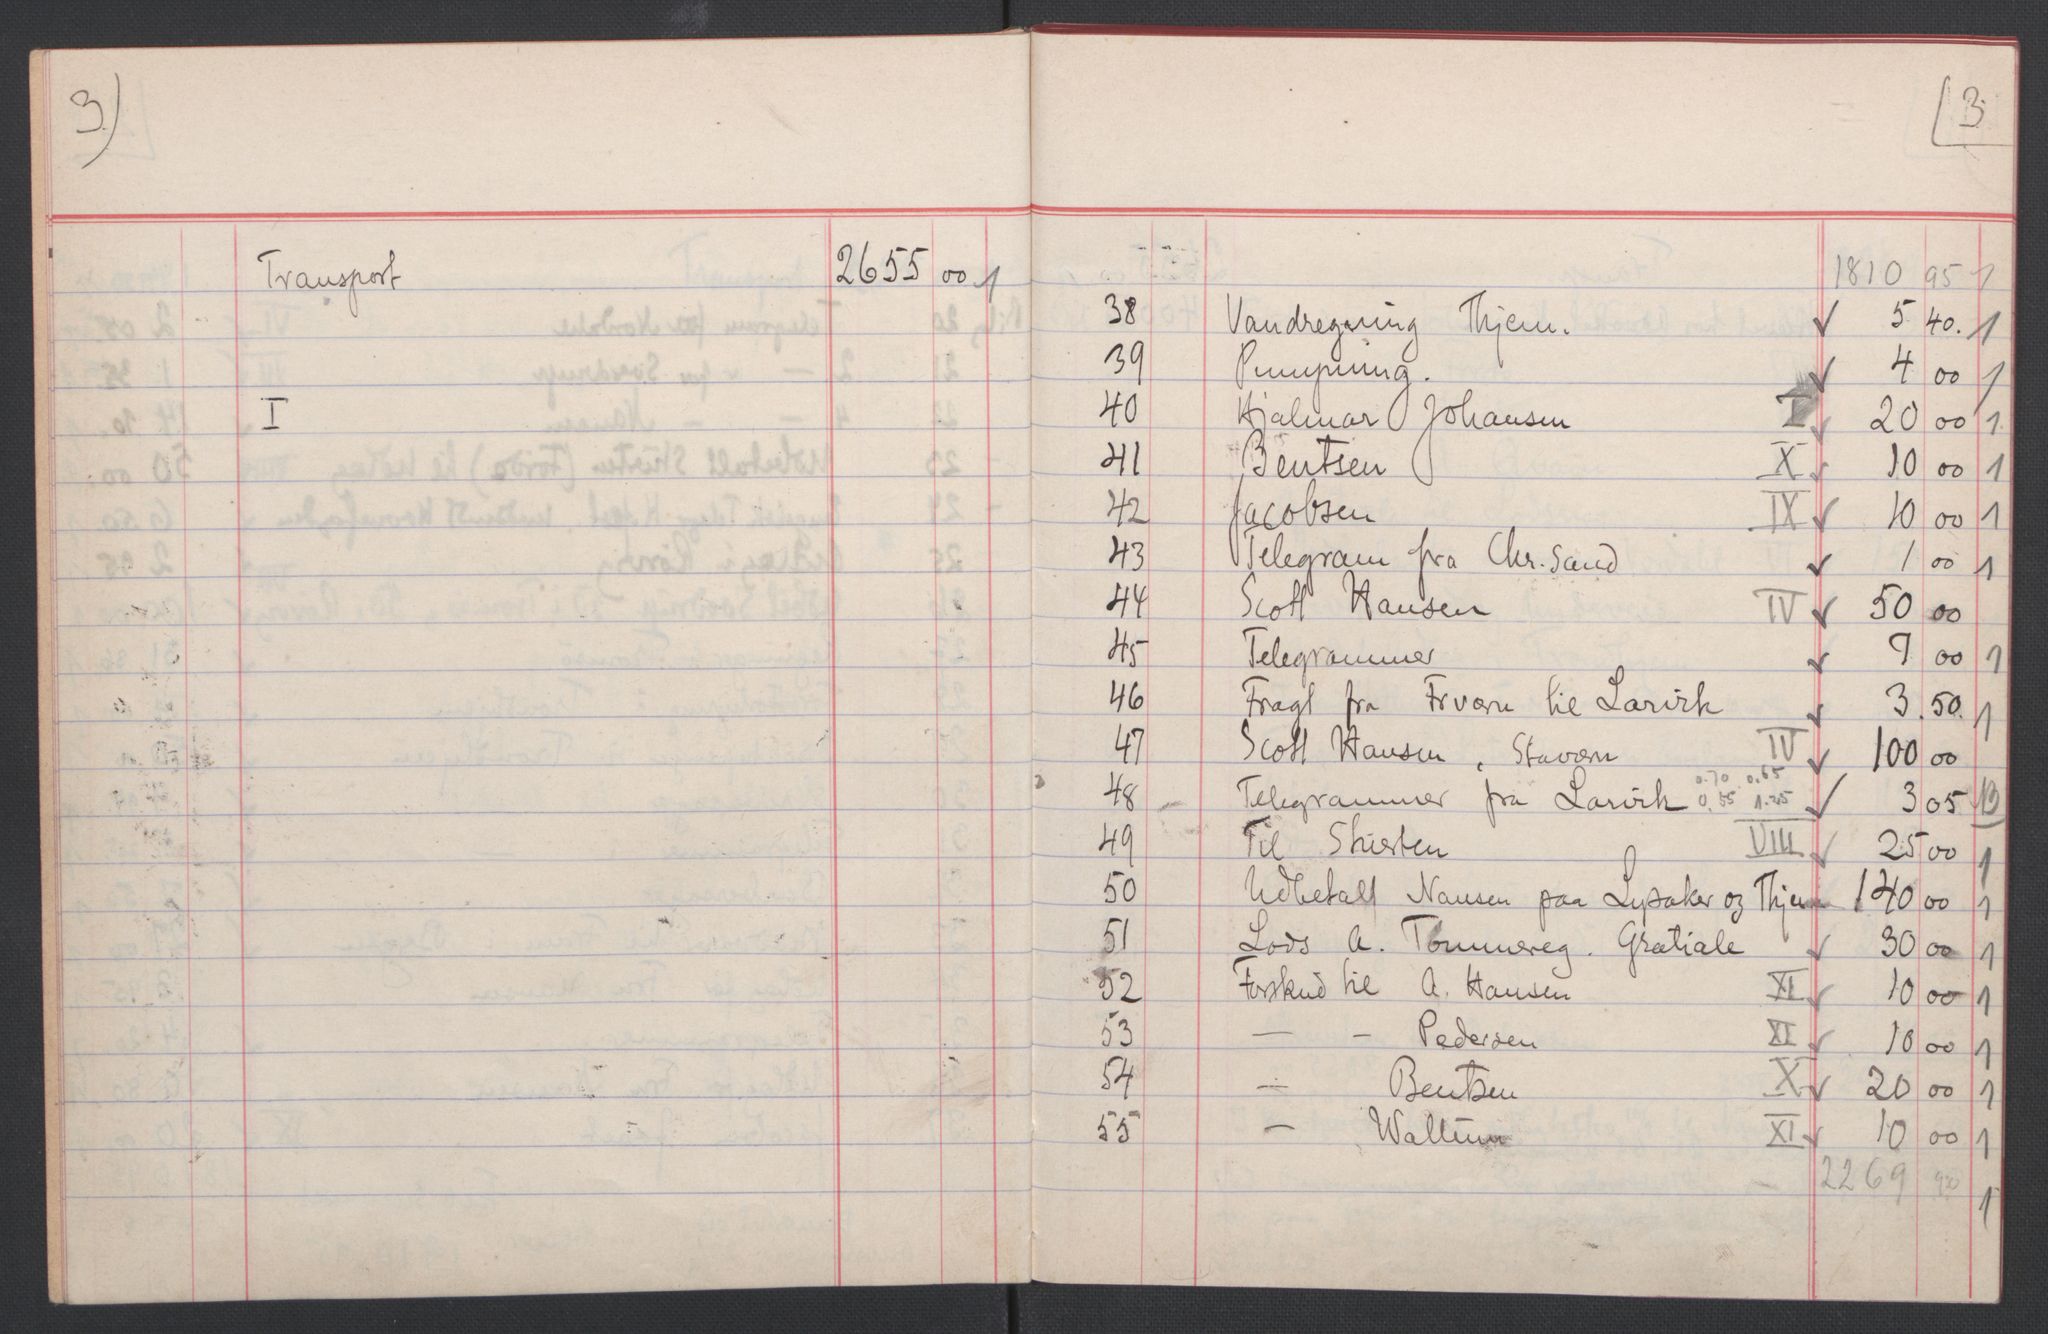 3)
Transport 2655 00 1
I
3
1810 95 1
38 Vandregning Thjem. ✓ 5 40. 1
39 Pumpning. ✓ 4 00 1
40 Hjalmar Johansen I ✓ 20 00 1
41 Bentsen X ✓ 10 00 1
42 Jacobsen IX ✓ 10 00 1
43 Telegram fra Chr. Sand ✓ 1 00 1
44 Scott Hansen IV ✓ 50 00
45 Telegrammer ✓ 7 00 1
46 Fragt fra Frværn til Larvik ✓ 3.50. 1
47 Scott Hansen, Staværn IV ✓ 100 00
0.70 0.65
48 Telegrammer fra Larvik 0.55 1.25 ✓ 3 05 13
49 Til Skierten VIII ✓ 25 00 1
50 Udbetalt Nansen paa Lysaker og Thjem 140 00 1
51 Lods A. Tommereg. Gratiale ✓ 30 00 1
52 Forskud til A. Hansen XI ✓ 10 00 1
53 — - Pedersen XI ✓ 10 00 1
54 — Bentsen X ✓ 20 00 1
55 — Waltum XI ✓ 10 00 1
2269 90 1